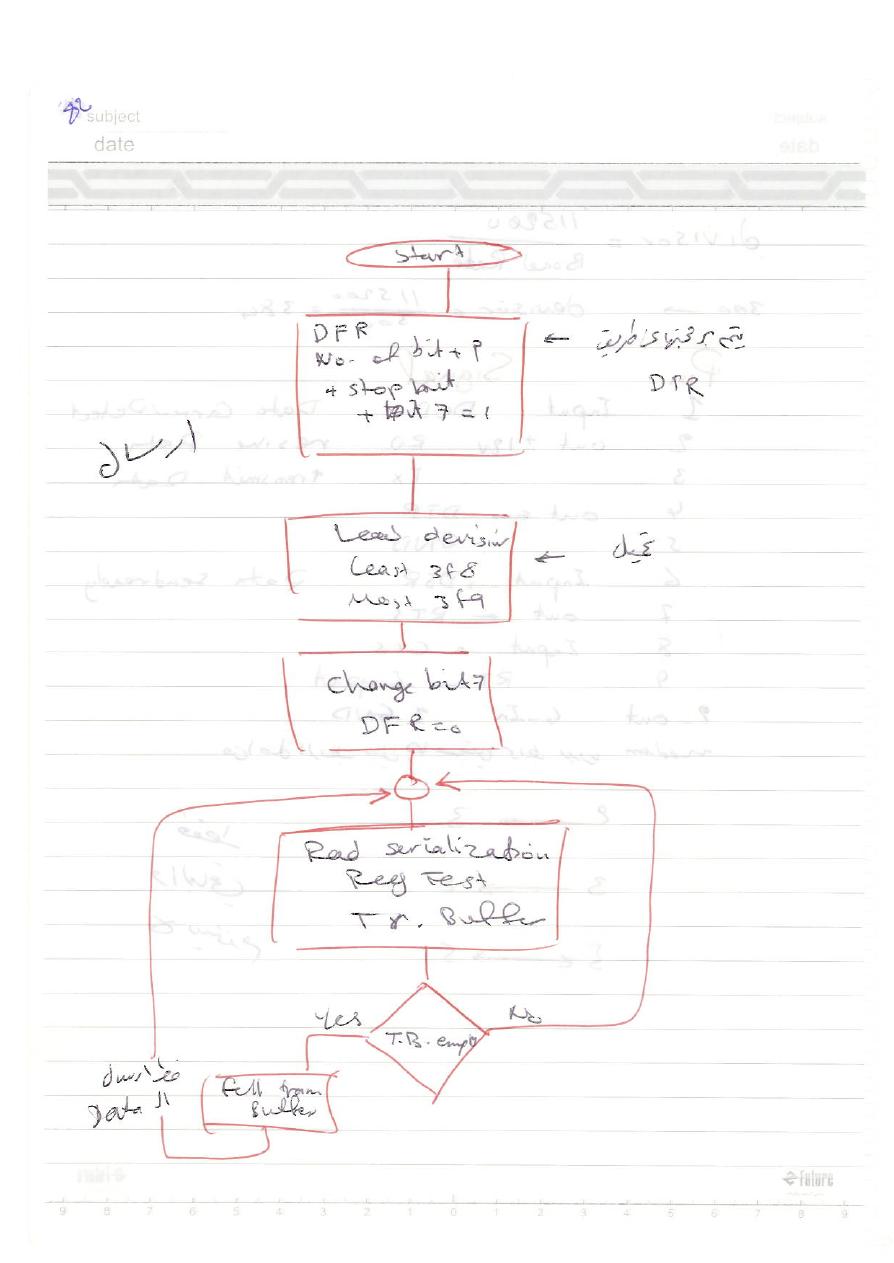 subject
date
start
DFR
No. of bit + P
+ stop bit
+ bit 7 = 1
← يتم برمجتها عن طريق
DFR
ارسال
Load devisior
Least 3f8
Most 3f9
← تحميل
Change bit 7
DFR = 0
Rad serialization
Reg Test
Tr. Buffer
T.B. empty
Yes
No
Full tram
Buffer
ارسال
ال Data
Future
9 8 7 6 5 4 3 2 1 0 1 2 3 4 5 6 7 8 9